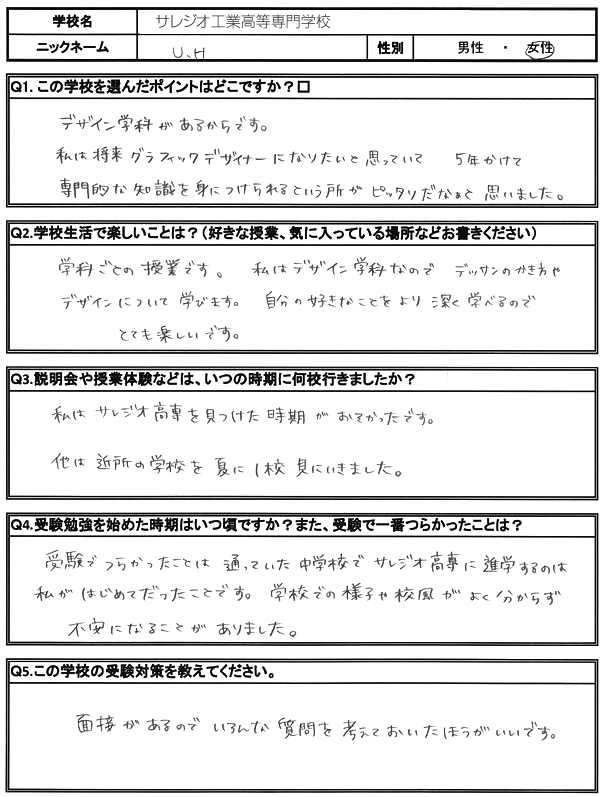 学校名 サレジオ工業高等専門学校
ニックネーム U.H 性別 男性 ・ 女性
Q1. この学校を選んだポイントはどこですか？□
デザイン学科があるからです。
私は将来グラフィックデザイナーになりたいと思っていて 5年かけて
専門的な知識を身につけられるという所がピッタリだなぁと思いました。
Q2.学校生活で楽しいことは？（好きな授業、気に入っている場所などお書きください）
学科ごとの授業です。 私はデザイン学科なので デッサンのかき方や
デザインについて学びます。 自分の好きなことをより深く学べるので
とても楽しいです。
Q3.説明会や授業体験などは、いつの時期に何校行きましたか？
私はサレジオ高専を見つけた時期がおそかったです。
他は近所の学校を夏に1校見にいきました。
Q4.受験勉強を始めた時期はいつ頃ですか？また、受験で一番つらかったことは？
受験でつらかったことは通っていた中学校でサレジオ高専に進学するのは
私がはじめてだったことです。学校での様子や校風がよく分からず
不安になることがありました。
Q5.この学校の受験対策を教えてください。
面接があるのでいろんな質問を考えておいたほうがいいです。